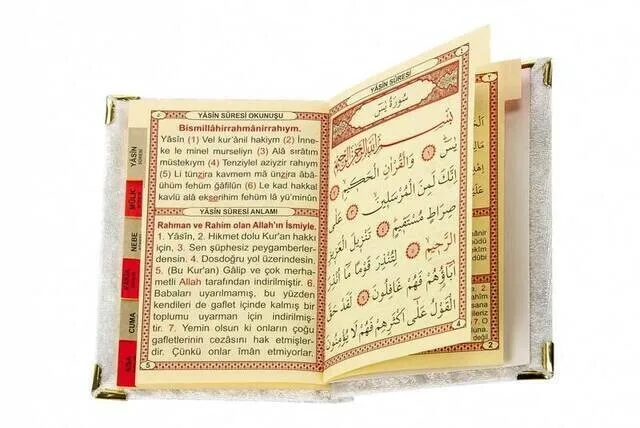 YÂSÎN SÛRESİ OKUNUŞU
Bismillâhirrahmânirrahıym.
Yâsîn (1) Vel kur'ânil hakiym (2) İnne-
ke le minel murseliyn (3) Alâ sırâtım
müstekıym (4) Tenziylel aziyzir rahıym
(5) Li tünzira kavmem mâ ünzira âbâ-
ühüm fehüm ğâfilûn (6) Le kad hakkal
kavlü alâ ekserihim fehüm lâ yü'minûn
YÂSÎN SÛRESİ ANLAMI
Rahman ve Rahim olan Allah'ın İsmiyle.
1. Yâsîn, 2. Hikmet dolu Kur'an hakkı
için, 3. Sen şüphesiz peygamberler-
densin. 4. Dosdoğru yol üzerindesin.
5. (Bu Kur'an) Gâlip ve çok merha-
metli Allah tarafından indirilmiştir. 6.
Babaları uyarılmamış, bu yüzden
kendileri de gaflet içinde kalmış bir
toplumu uyarman için indirilmiş-
tir. 7. Yemin olsun ki onların çoğu
gafletlerinin cezasını hak etmişler-
dir. Çünkü onlar îman etmiyorlar.
5
YÂSÎN
MÜLK
NEBE
CUMA
YÂSİN SÛRESİ
سُورَةُ يٰسٓ
يٰسٓ ﴿١﴾ وَالْقُرْاٰنِ الْحَك۪يمِ ﴿٢﴾
اِنَّكَ لَمِنَ الْمُرْسَل۪ينَ ﴿٣﴾ عَلٰى
صِرَاطٍ مُسْتَق۪يمٍ ﴿٤﴾ تَنْز۪يلَ الْعَز۪يزِ
الرَّح۪يمِ ﴿٥﴾ لِتُنْذِرَ قَوْمًا مَٓا اُنْذِرَ
اٰبَٓاؤُ۬هُمْ فَهُمْ غَافِلُونَ ﴿٦﴾ لَقَدْ حَقَّ
الْقَوْلُ عَلٰٓى اَكْثَرِهِمْ فَهُمْ لَا يُؤْمِنُونَ
4
2